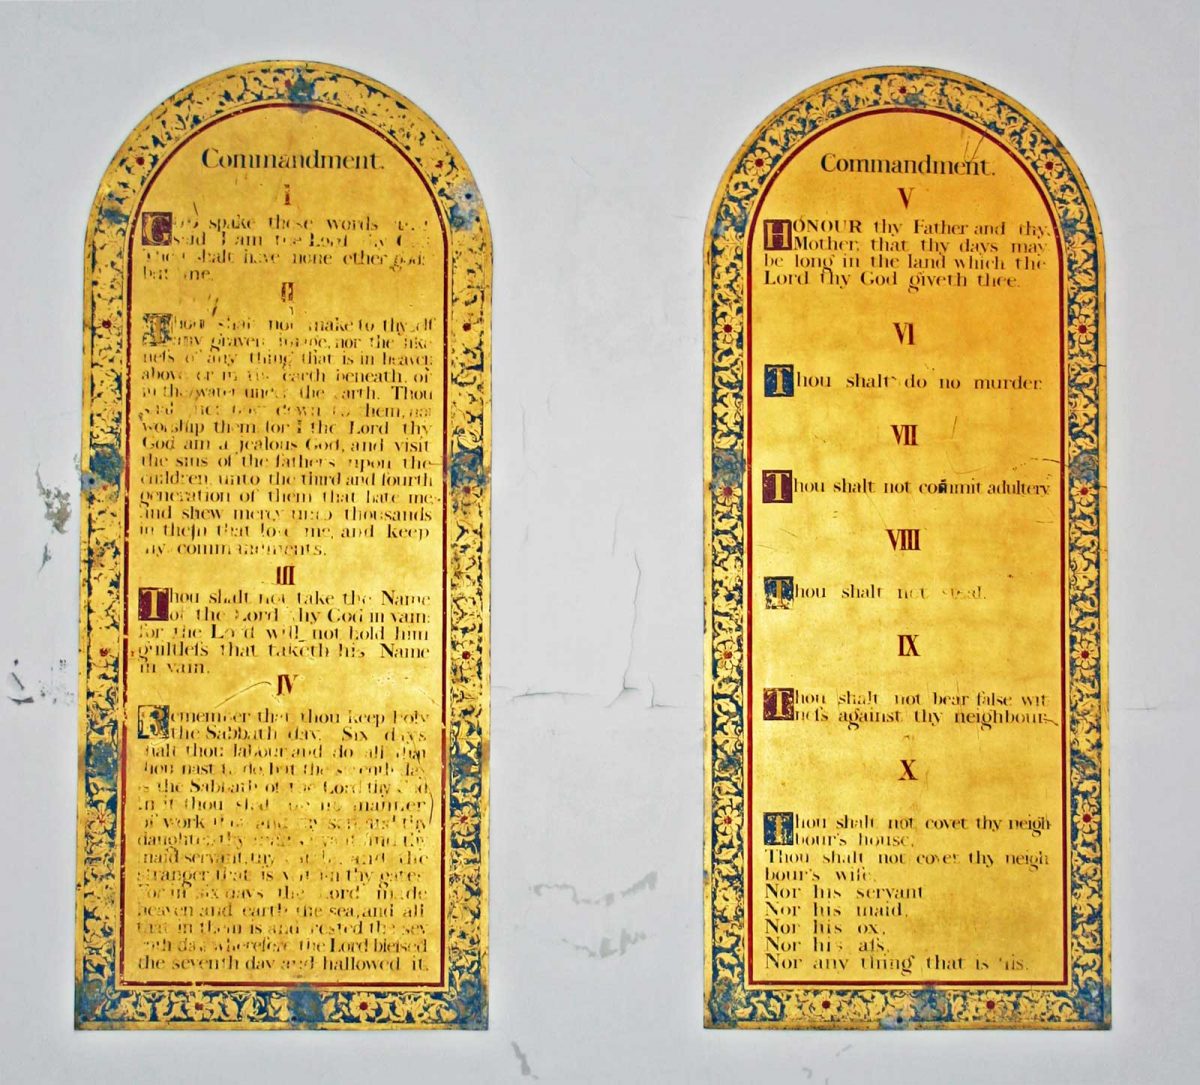 Commandment.
I
spake these words and
said I am the Lord thy
Thou shalt have none other gods
but me.
II
Thou shalt not make to thyself
any graven image, nor the like
neſs of any thing that is in heaven
above or in the earth beneath, or
in the water under the earth. Thou
shalt not bow down to them, nor
worship them for I the Lord thy
God am a jealous God, and visit
the sins of the fathers upon the
children, unto the third and fourth
generation of them that hate me
and shew mercy unto thousands
in them that love me, and keep
my commandments.
III
Thou shalt not take the Name
of the Lord thy God in vain:
for the Lord will not hold him
guiltleſs that taketh his Name
in vain.
IV
Remember that thou keep holy
the Sabbath day. Six days
shalt thou labour and do all that
thou hast to do, but the seventh day
is the Sabbath of the Lord thy God
In it thou shalt do no manner
of work thou and thy son and thy
daughter, thy man servant and thy
maid servant, thy cattle, and the
stranger that is within thy gates
For in six days the Lord made
heaven and earth the sea, and all
that in them is and rested the sev
enth day wherefore the Lord bleſsed
the seventh day and hallowed it.
Commandment.
V
HONOUR thy Father and thy
Mother, that thy days may
be long in the land which the
Lord thy God giveth thee.
VI
Thou shalt do no murder.
VII
Thou shalt not commit adultery
VIII
Thou shalt not steal.
IX
Thou shalt not bear false wit
neſs against thy neighbour
X
Thou shalt not covet thy neigh
bour's house.
Thou shalt not covet thy neigh
bour's wife.
Nor his servant
Nor his maid,
Nor his ox,
Nor his aſs,
Nor any thing that is his.